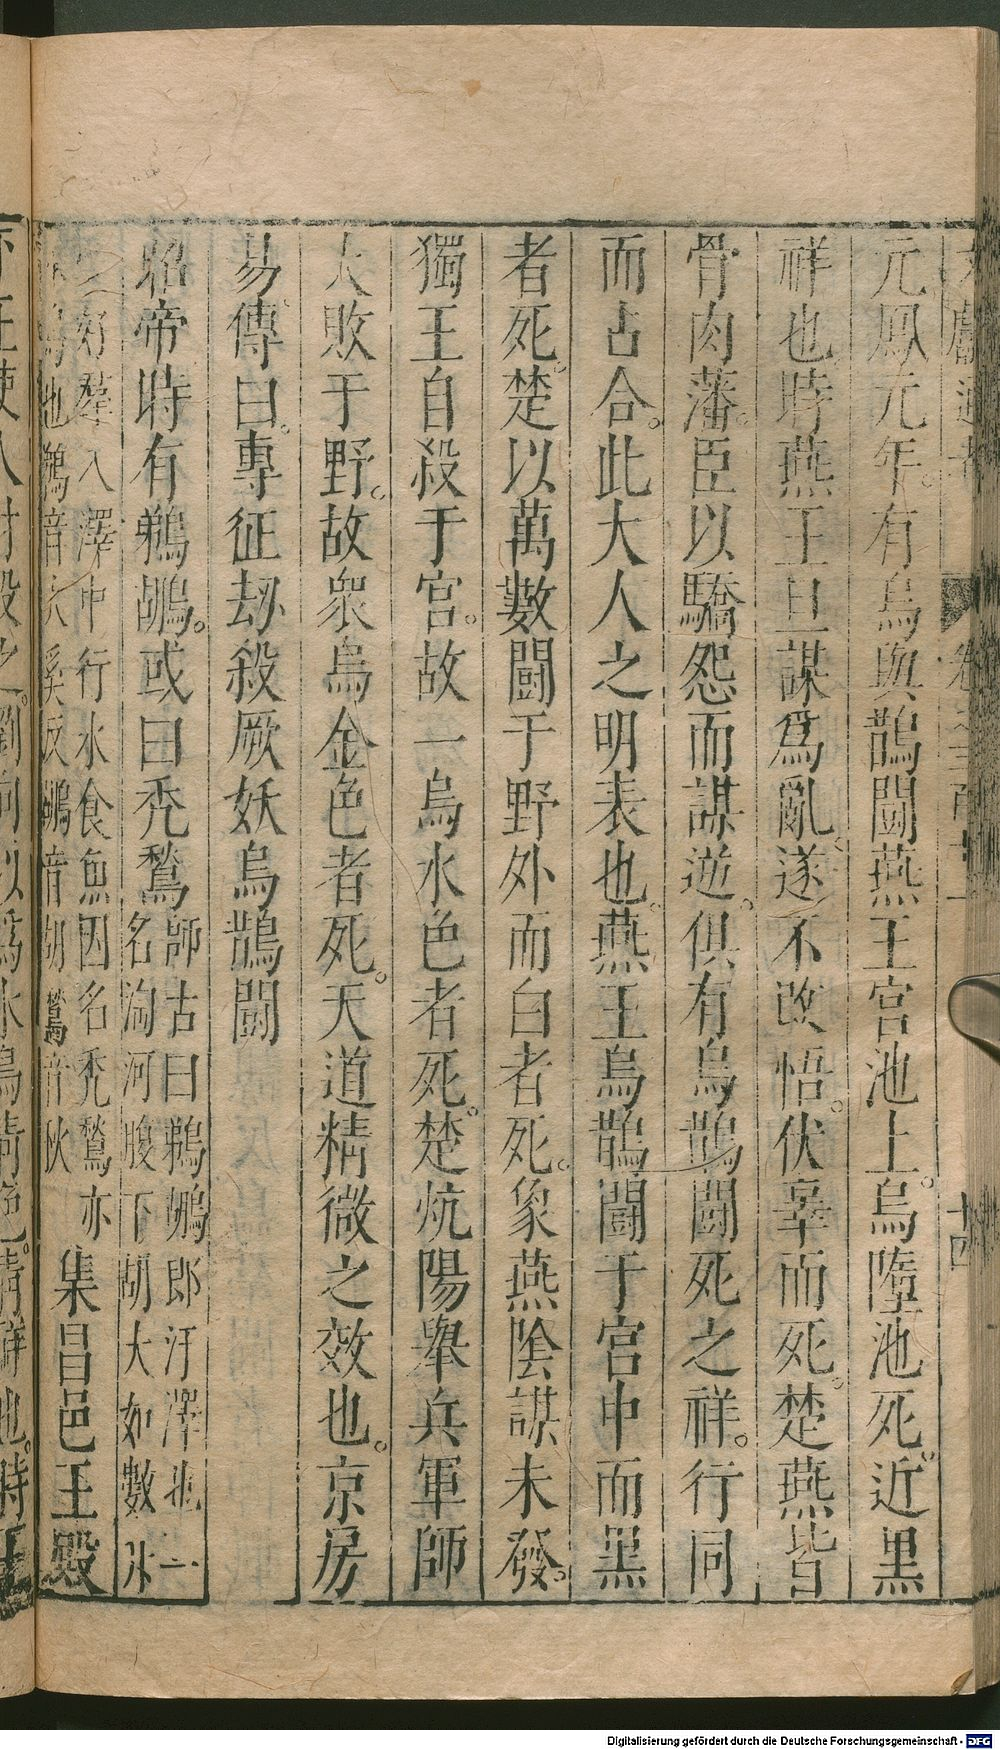 元鳳元年。有烏與鵲鬪燕王宮池上。烏墮池死。近黑
祥也時燕王旦謀爲亂。遂不改悟。伏辜而死。楚燕皆
骨肉藩。臣以驕怨而謀逆。俱有烏鵲鬪死之祥。行同
而占合。此大人之明表也。燕王烏鵲鬪于宮中而黑
者死。楚以萬數鬪于野外而白者死。象燕陰謀未發。
獨王自殺于宮。故一烏水色者死。楚炕陽舉兵軍師
大敗于野。故衆烏金色者死。天道精微之效也。京房
易傳曰。專征劫殺厥妖烏鵲鬪
昭帝時有鵜鶘。或曰禿鶖
師古曰鵜鶘郎汙澤也一
名淘河腹下胡大如數升
好羣入澤中行水食魚因名禿鶖亦
鳥也鵜音大奚反鶘音胡鶖音秋
集昌邑王殿
Digitalisierung gefördert durch die Deutsche Forschungsgemeinschaft - DFG